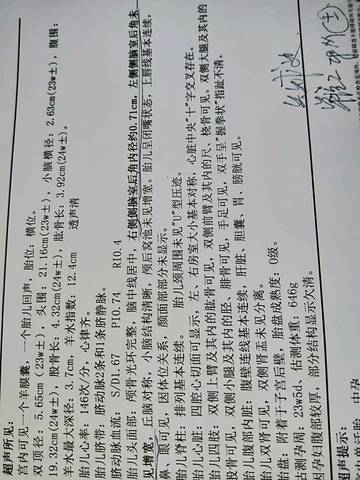 超声所见:
宫内可见一个羊膜囊、一个胎儿回声,胎位:横位。
双顶径:5.65cm (23w±),头围:21.16cm(23w±),小脑横径:2.63cm(23w±),腹围:
19.32cm(24w±),股骨长:4.32cm(24w±),肱骨长:3.92cm(24w±)。
羊水最大深径:3.7cm,羊水指数:12.4cm 透声清
胎儿心率:146次/分,心律齐。
胎儿脐带:脐动脉2条和1条脐静脉。
脐动脉血流:S/D1.67 PI0.74 RI0.4
胎儿头面部:颅骨光环完整,脑中线居中,右侧侧脑室后角内径约0.71cm,左侧侧脑室后角未
见增宽,丘脑对称,小脑结构清晰,颅后窝池未见增宽。胎儿呈闭嘴状态,上唇线基本连续,
鼻、眼可见,因体位关系,颜面部部分未显示。
胎儿脊柱:排列基本连续。 胎儿颈周围未见"U"型压迹。
胎儿心脏:四腔心切面可显示,左、右房室大小基本对称,心脏中央"十"字交叉存在。
胎儿四肢:双侧上臂及其内的肱骨可见,双侧前臂及其内的尺、桡骨可见。双侧大腿及其内的
股骨可见,双侧小腿及其内的胫、腓骨可见,手足可见,双手呈"握拳状"指趾不清。
胎儿腹部内脏:腹壁连线基本连续,肝脏、胆囊、胃、膀胱可见。
胎儿双肾可见,双侧肾盂未见分离。
胎盘:附着于子宫后壁,胎盘成熟度:0级。
估测孕周:23w5d,估测体重:646g
因孕妇腹部较厚,部分结构显示欠清。
超声提示: